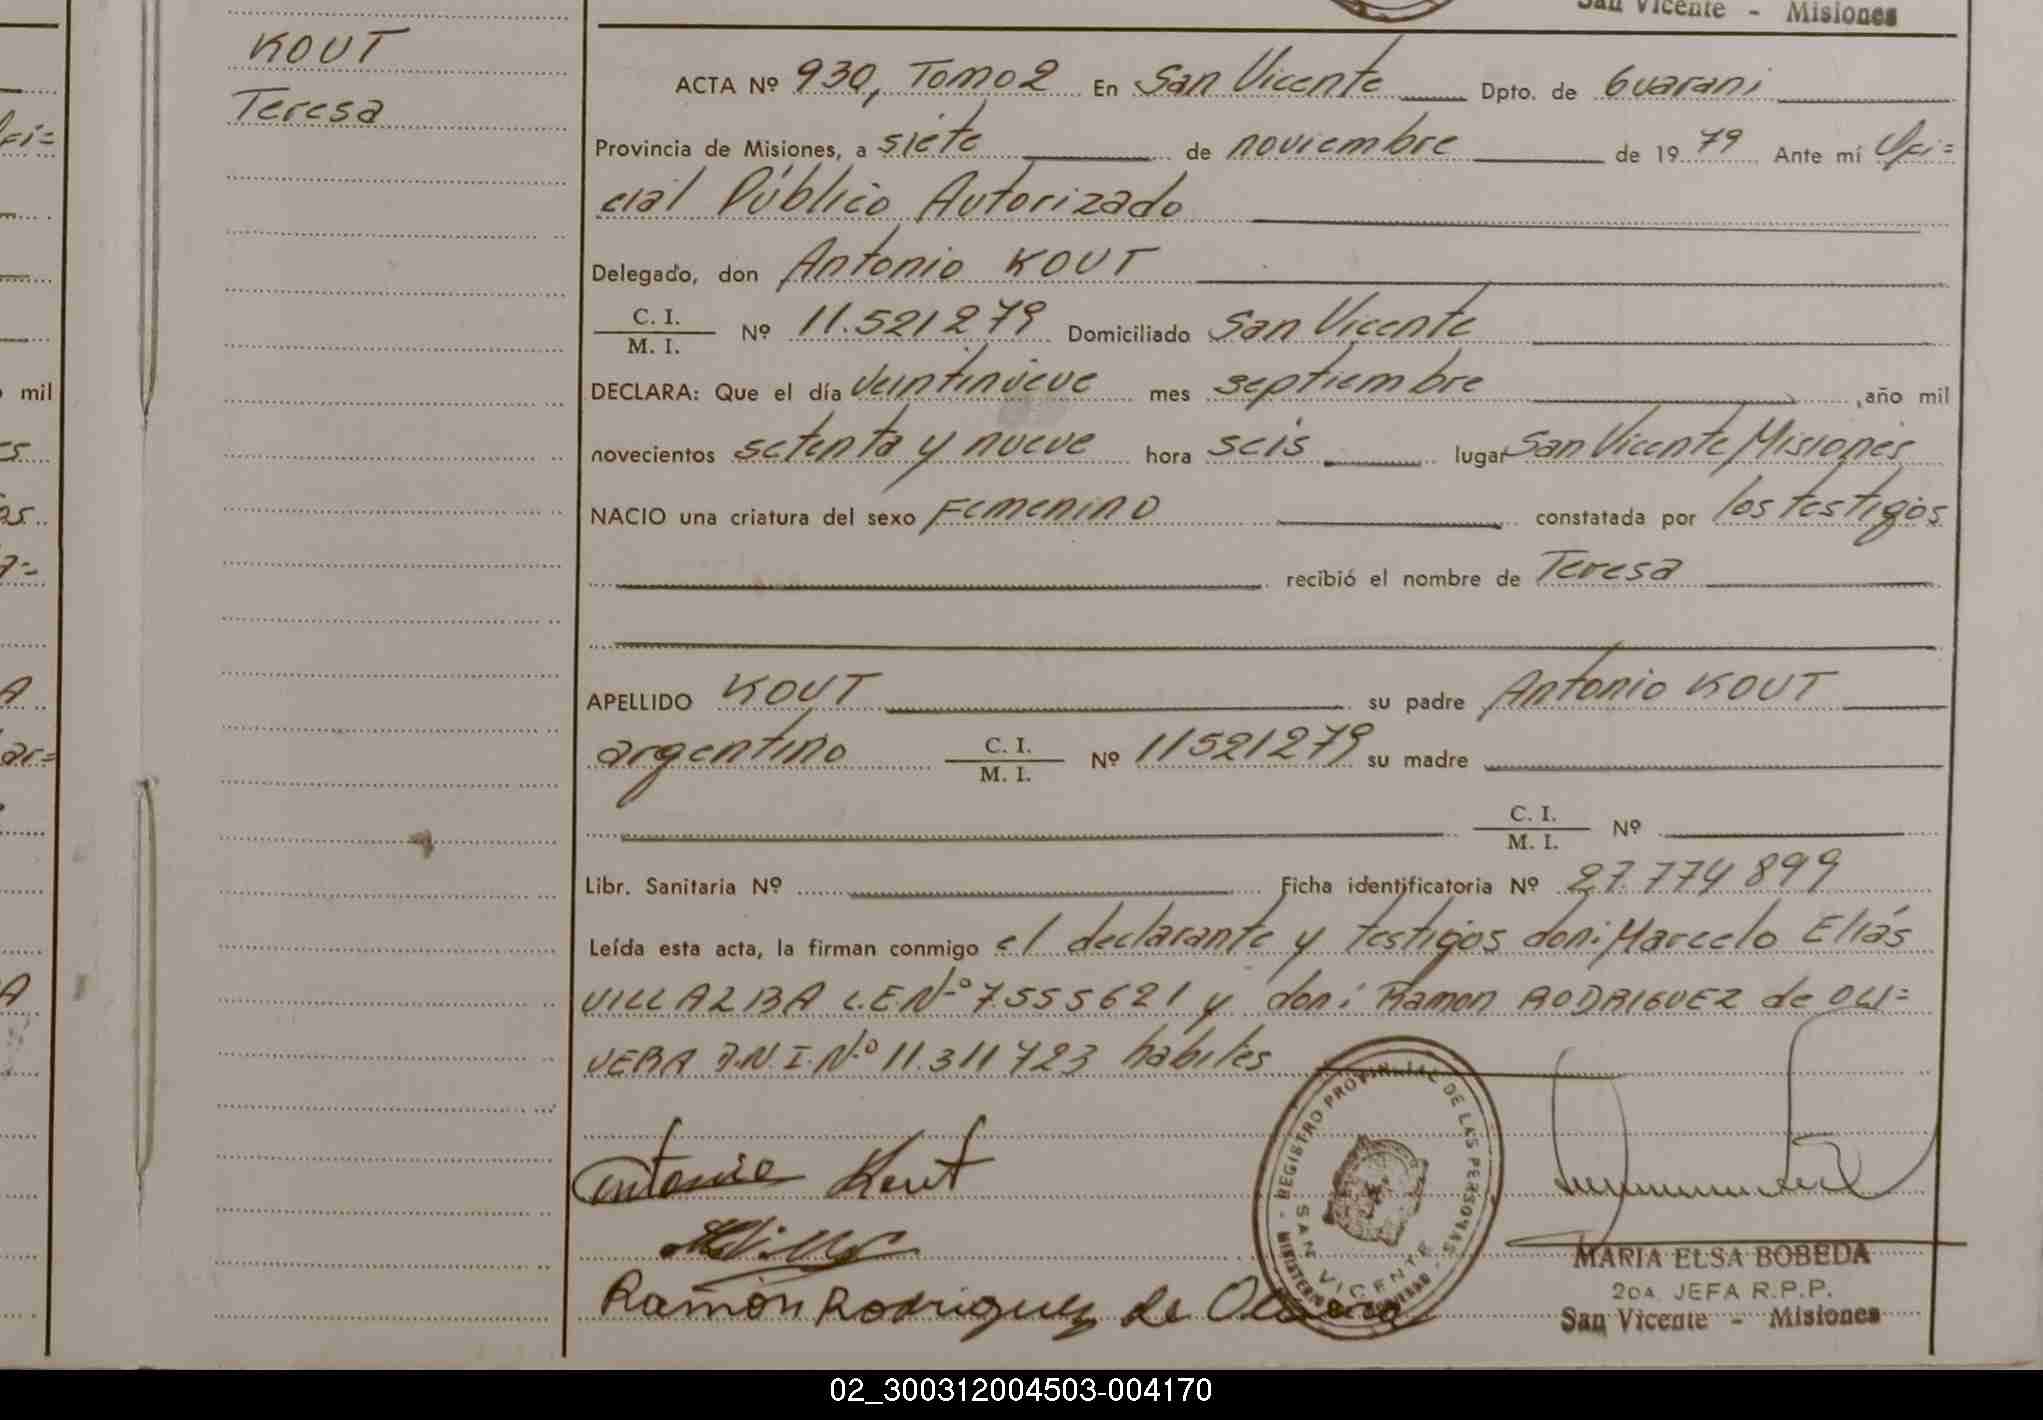 San Vicente - Misiones
KOUT
Teresa
ACTA Nº 930, Tomo 2 En San Vicente Dpto. de Guarani
Provincia de Misiones, a siete de noviembre de 19 79 Ante mí Ofi=
cial Público Autorizado
Delegado, don Antonio KOUT
C. I.
M. I. Nº 11.521279 Domiciliado San Vicente
DECLARA: Que el día veintinueve mes septiembre ,año mil
novecientos setenta y nueve hora seis lugar San Vicente Misiones
NACIO una criatura del sexo Femenino constatada por los testigos
recibió el nombre de Teresa
APELLIDO KOUT su padre Antonio KOUT
argentino C. I.
M. I. Nº 11521279 su madre
C. I.
M. I. Nº
Libr. Sanitaria Nº Ficha identificatoria Nº 27.774899
Leída esta acta, la firman conmigo el declarante y testigos don: Marcelo Elías
VILLALBA L.E.Nº 7.555621 y don: Ramon RODRIGUEZ de OLI=
VERA D.N.I.Nº 11.311723 hábiles
Antonio Kout
Ramón Rodriguez de Olivera
REGISTRO PROVINCIAL DE LAS PERSONAS
SAN VICENTE
MARIA ELSA BOBEDA
2DA. JEFA R.P.P.
San Vicente - Misiones
mil
02_300312004503-004170